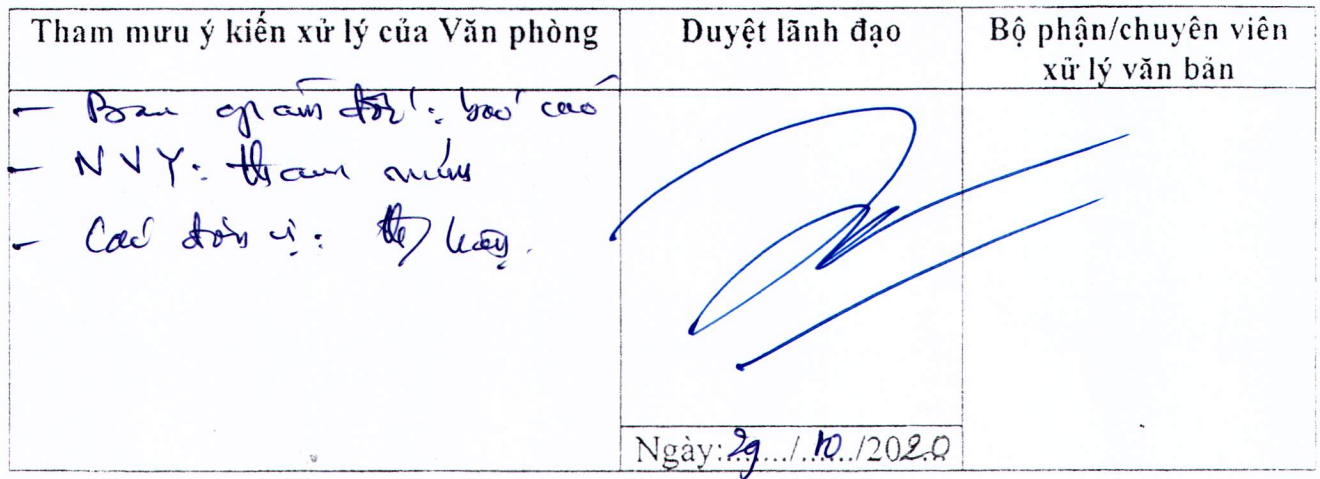 Tham mưu ý kiến xử lý của Văn phòng
Duyệt lãnh đạo
Bộ phận/chuyên viên
xử lý văn bản
- Ban giám đốc: báo cáo
- NVY: tham mưu
- Các đơn vị:
Ngày: 29.../.10../2020